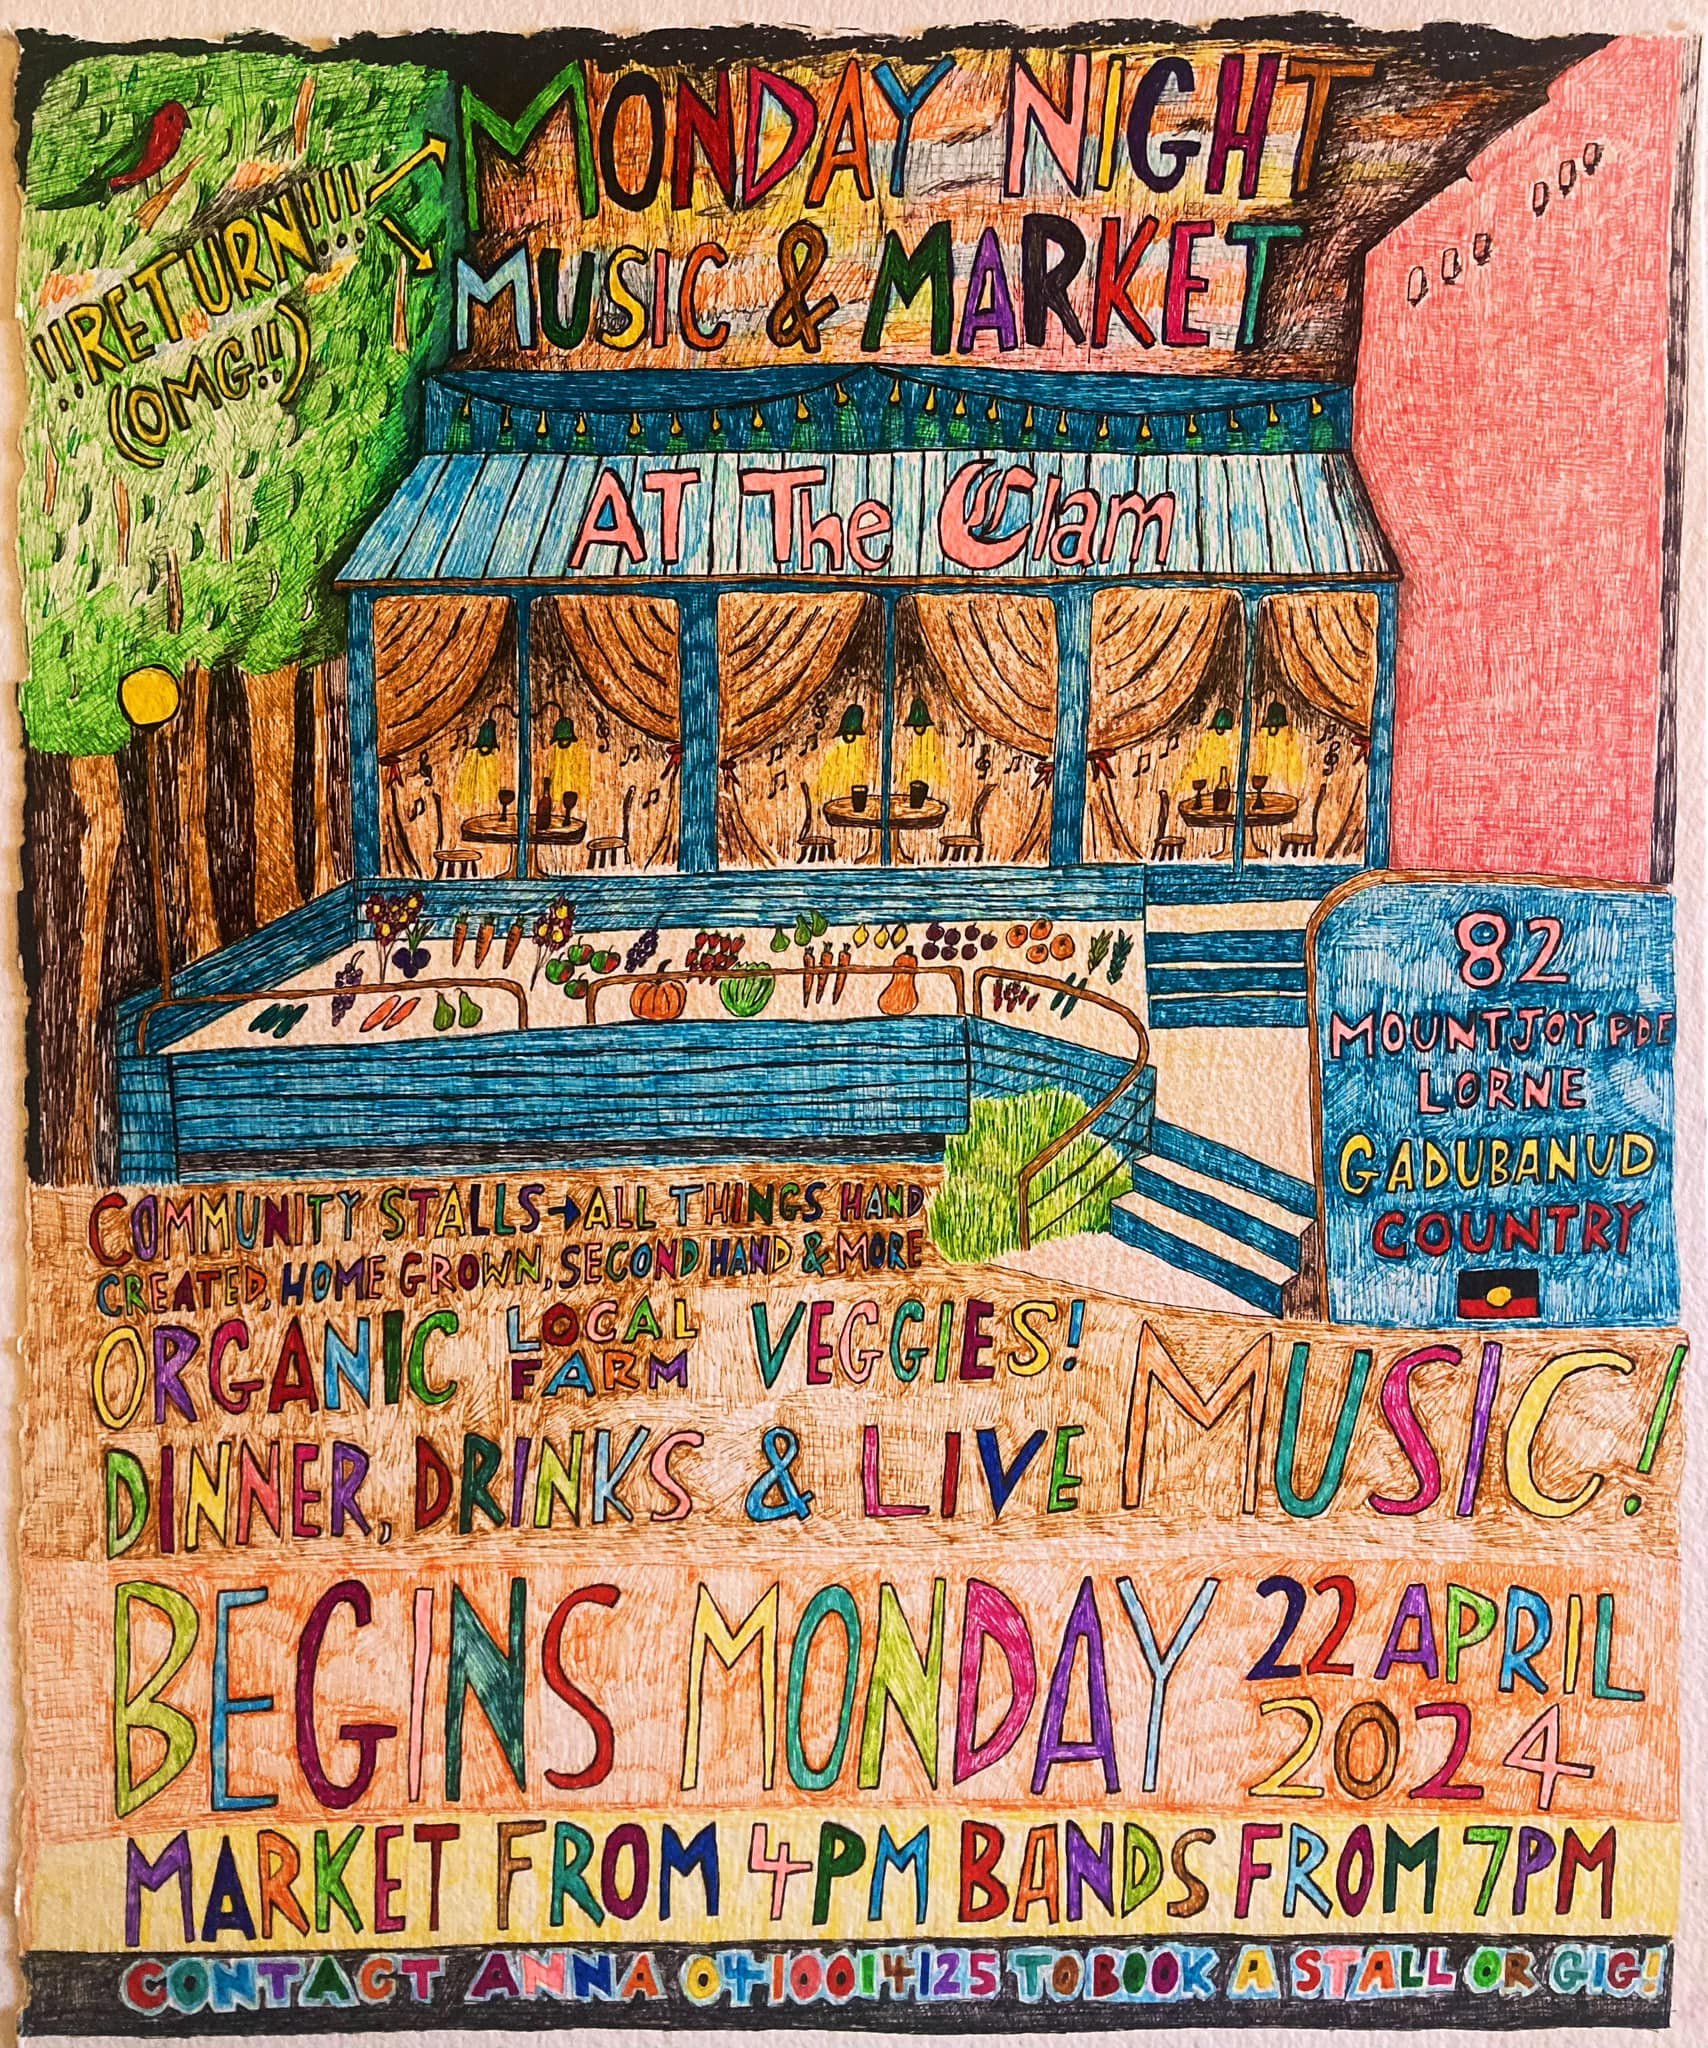 MONDAY NIGHT
MUSIC & MARKET
!!RETURN!!!
(OMG!!)
AT The Clam
82
MOUNTJOY PDE
LORNE
GADUBANUD
COUNTRY
COMMUNITY STALLS → ALL THINGS HAND
CREATED, HOME GROWN, SECOND HAND & MORE
ORGANIC LOCAL FARM VEGGIES!
DINNER, DRINKS & LIVE MUSIC!
BEGINS MONDAY 22 APRIL 2024
MARKET FROM 4PM BANDS FROM 7PM
CONTACT ANNA 0410014125 TO BOOK A STALL OR GIG!